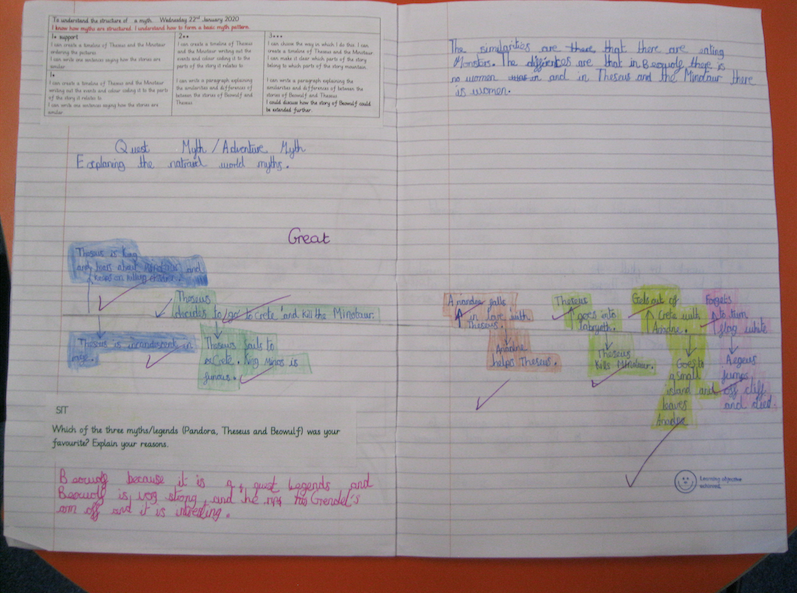 To understand the structure of a myth. Wednesday 22nd January 2020
I know how myths are structured. I understand how to form a basic myth pattern.
1* support
I can create a timeline of Theseus and the Minotaur
ordering the pictures
I can write one sentence saying how the stories are
similar
1*
I can create a timeline of Theseus and the Minotaur
writing out the events and colour coding it to the part
of the story it relates to
I can write one sentence saying how the stories are
similar
2**
I can create a timeline of Theseus
and the Minotaur writing out the
events and colour coding it to the
parts of the story it relates to
I can write a paragraph explaining
the similarities and differences of
between the stories of Beowulf and
Theseus
3***
I can choose the way in which I do this. I can
create a timeline of Theseus and the Minotaur.
I can make it clear which parts of the story
belong to which parts of the story mountain.
I can write a paragraph explaining the
similarities and differences of between the
stories of Theseus and Beowulf
I could discuss how the story of Beowulf could
be extended further.
Quest Myth / Adventure Myth
Explaning the natraul world myths.
Great
Theseus is
and hears about and
Theseus
decides to go to Crete and kill the Minotaur.
Theseus is incandescent in
rage.
Theseus sails to
Crete. King Minos is
furious.
SIT
Which of the three myths/legends (Pandora, Theseus and Beowulf) was your
favourite? Explain your reasons.
Beowulf because it is a quest Legends and
Beowulf is very strong and he rips Grendel's
arm off and it is intresting.
The similarities are there that there are
Monsters. The are that in Beowulf there is
no women in and in Theseus and the Minotaur there
is women.
falls
in love with
Theseus.
helps Theseus.
Theseus
goes into
Theseus
kills Minotaur.
Gets out of
Crete with
Goes to
a small
island and
leaves
to turn
flag white
Aegeus
jumps
off cliff
and died.
Learning objective
achieved.